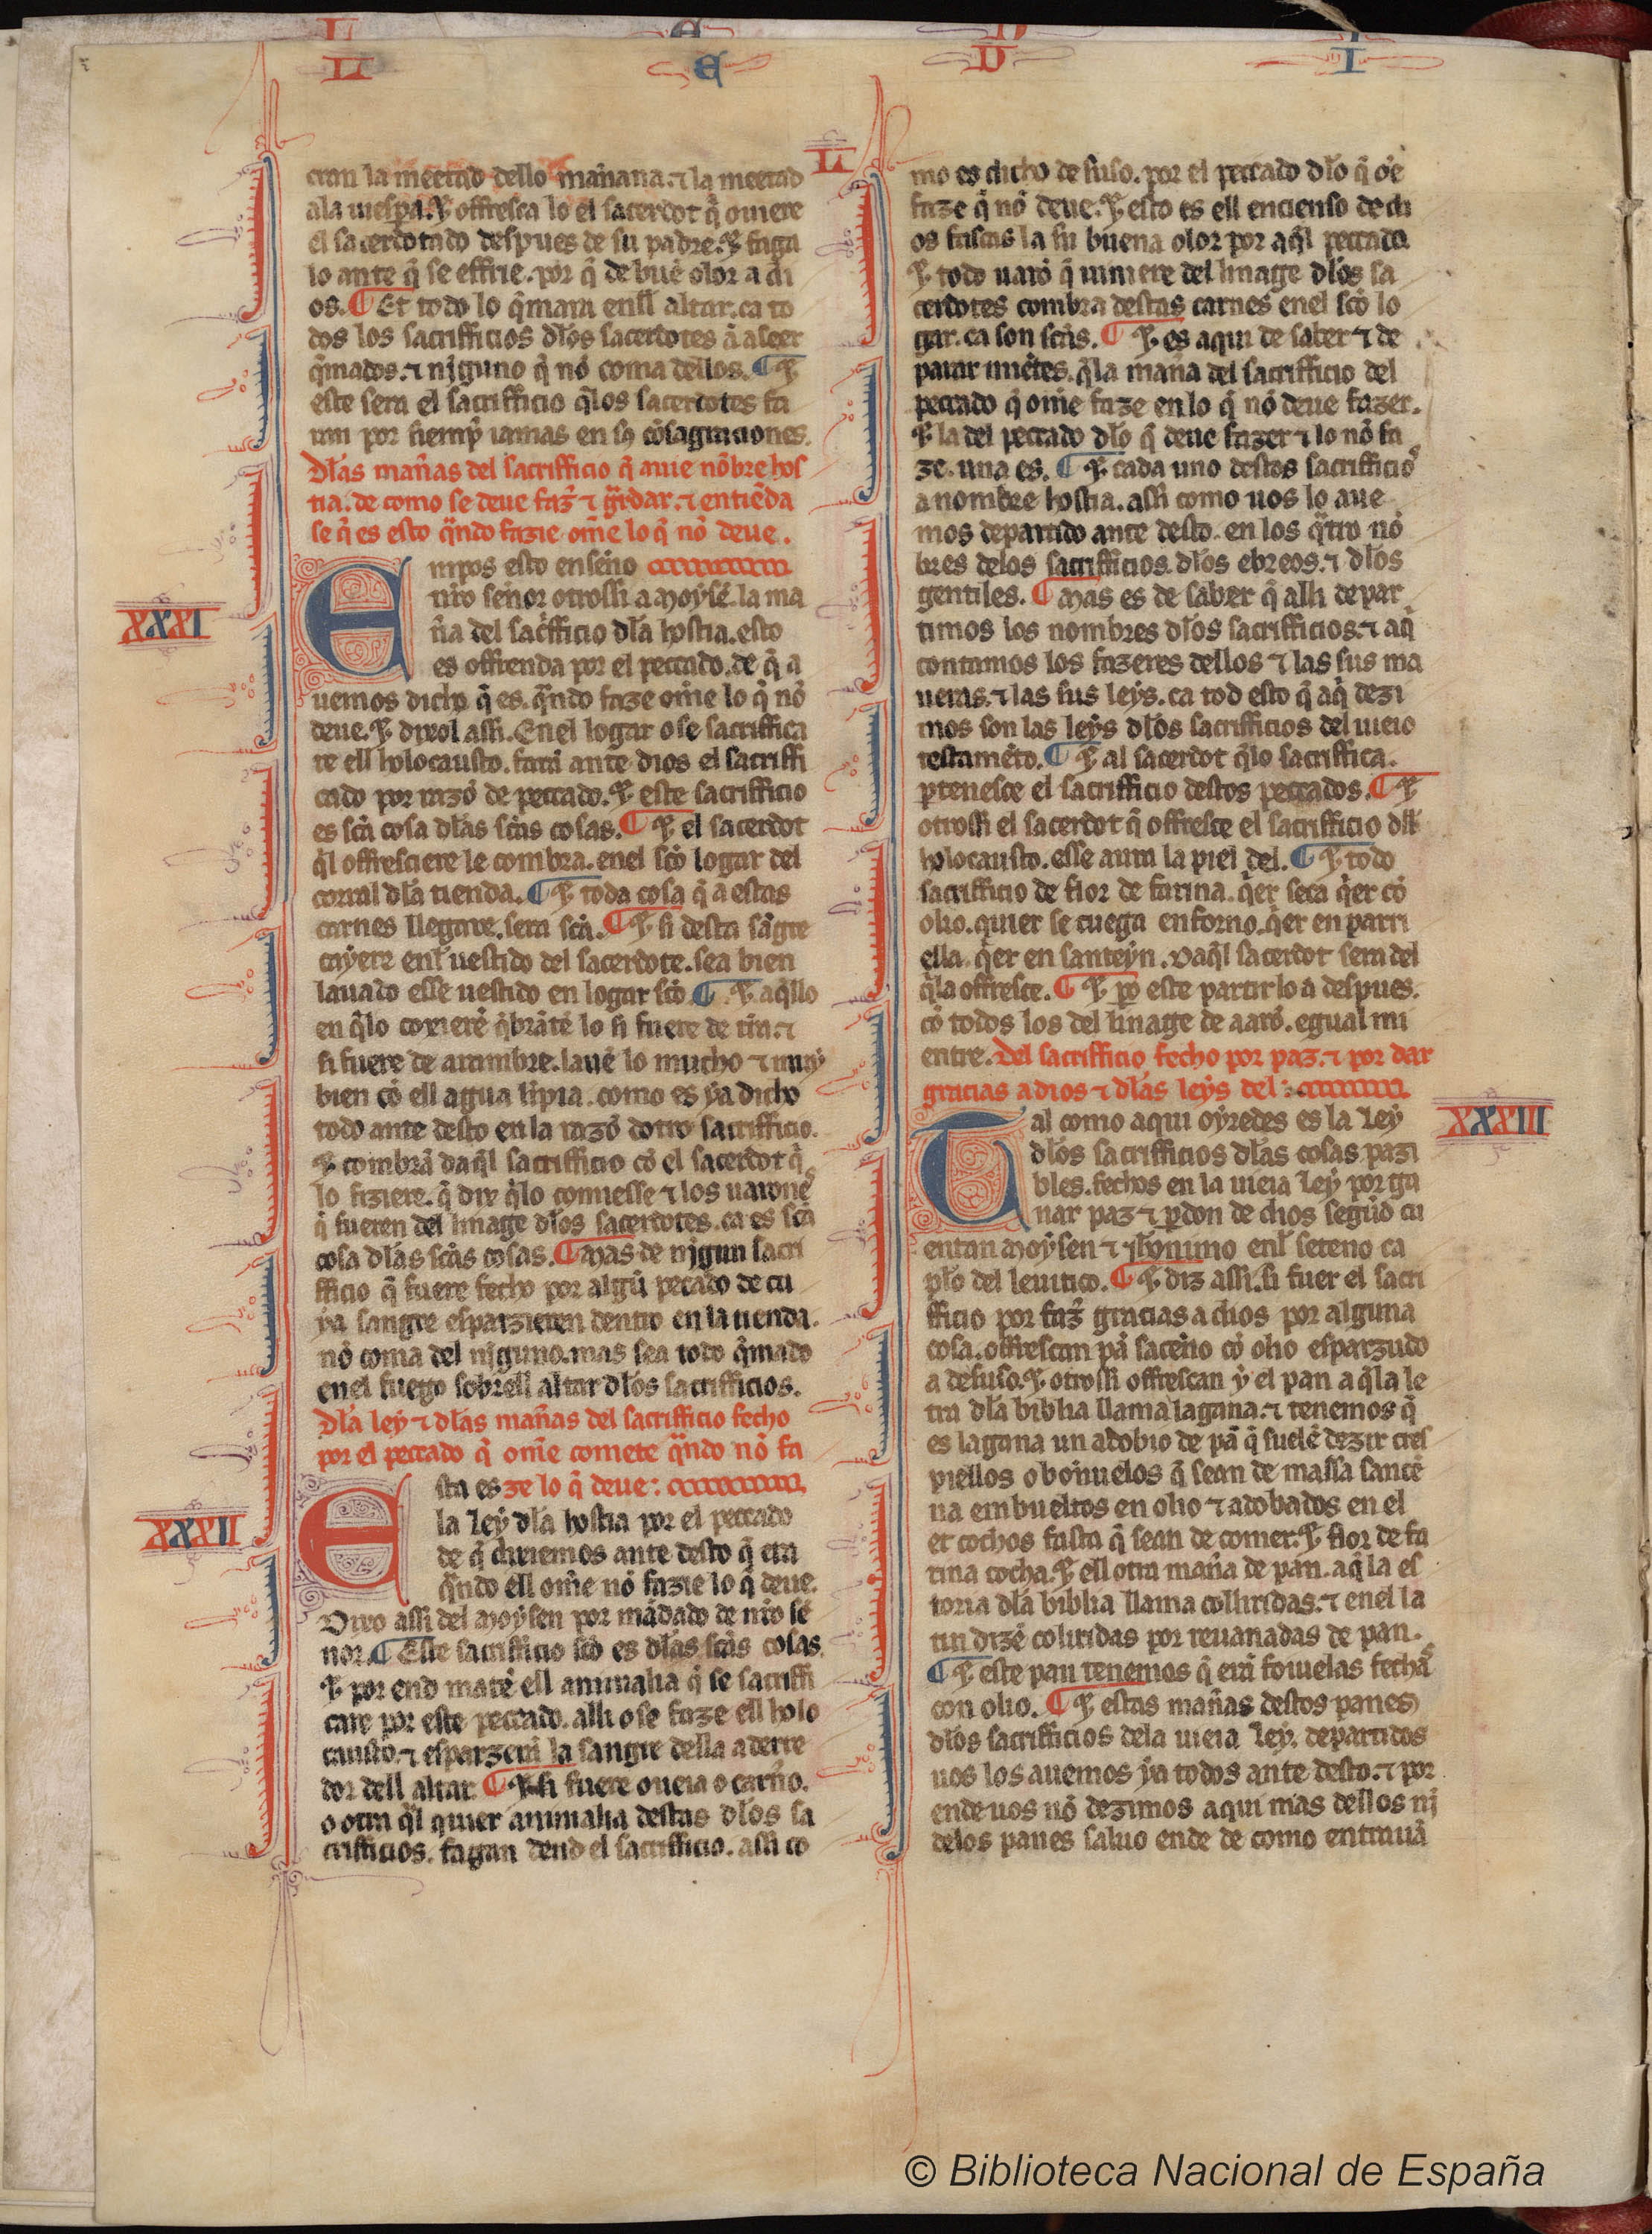 L E
D I
L
cran la meetad dello mañana. ⁊ la meetad
ala uiespa. ⁊ offresca lo el sacerdot q̃ ouiere
el sacerdotado despues de su padre. ⁊ faga
lo ante q̃ se effrie. por q̃ de buẽ olor a di
os. ¶ Et todo lo q̃mara enll altar. ca to
dos los sacrifficios dl̃os sacerdotes ã a seer
q̃mados. ⁊ nj̃guno q̃ nõ coma dellos. ¶ ⁊
este sera el sacrifficio q̃los sacerdotes fa
ran por siemp̃ iamas en sỹ cõsagraciones.
Dl̃as mañas del sacrifficio q̃ auie nõbre hos
tia. de como se deue faz̃ ⁊ gr̃dar. ⁊ entiẽda
se q̃ es esto q̃ndo fazie om̃e lo q̃ nõ deue.
XXXI
Empos esto enseño
nr̃o señor otrossi a moysẽ. la ma
ñã del sac̃fficio dl̃a hostia. esto
es offrenda por el peccado. de q̃ a
uemos dicho q̃ es. q̃ndo faze om̃e lo q̃ nõ
deue. ⁊ dixol assi. Enel logar o se sacriffica
re ell holocausto. fara ante dios el sacriffi
cado por razõ de peccado. ⁊ este sacrifficio
es sc̃a cosa dl̃as sc̃as cosas. ¶ ⁊ el sacerdot
q̃l offresciere le combra. enel sc̃o logar del
corral dl̃a tienda. ¶ ⁊ toda cosa q̃ a estas
carnes llegare. sera sc̃a. ¶ ⁊ si desta sãgre
cayere enl̃ uestido del sacerdote. sea bien
lauado esse uestido en logar sc̃o. ¶ ⁊ aq̃llo
en q̃lo coxierẽ q̃brãtẽ lo si fuere de tirã. ⁊
si fuere de arambre. lauẽ lo mucho ⁊ muy
bien cõ ell agua lĩpia. como es ya dicho
todo ante desto en la razõ dotro sacrifficio.
⁊ combrã daq̃l sacrifficio cõ el sacerdot q̃
lo fiziere. q̃ dix q̃lo comiesse ⁊ los uarones
q̃ fueren del linage dl̃os sacerdotes. ca es sc̃a
cosa dl̃as sc̃as cosas. ¶ Mas de nj̃gun sacri
fficio q̃ fuere fecho por algũ peccado de cu
ya sangre esparzieren dentro en la tienda.
nõ coma del nj̃guno. mas sea todo q̃mado
enel fuego sobrell altar dl̃os sacrifficios.
Dl̃a ley ⁊ dl̃as mañas del sacrifficio fecho
por el peccado q̃ om̃e comete q̃ndo nõ fa
ze lo q̃ deue:
XXXII
Esta es
la Ley dl̃a hostia por el peccado
de q̃ dixiemos ante desto q̃ era
q̃ndo ell om̃e nõ fazie lo q̃ deue.
Dixo assi del moysen por mãdado de nr̃o se
nor. ¶ Este sacrifficio sc̃o es dl̃as sc̃as cosas.
⁊ por end matẽ ell animalia q̃ se sacriffi
care por este peccado. alli o se faze ell holo
causto. ⁊ esparzerã la sangre della a derre
dor dell altar. ¶ ⁊ si fuere oueia o carñ̃o.
o otra q̃l quier animalia destas dl̃os sa
crifficios. fagan dend el sacrifficio. assi co
mo es dicho de suso. por el peccado dl̃o q̃ o͂e
faze q̃ nõ deue. ⁊ esto es ell encienso de di
os fascas la su buena olor por aq̃l peccado.
⁊ todo uarõ q̃ uiniere del linage dl̃os sa
cerdotes combra destas carnes enel sc̃o lo
gar. ca son sc̃as. ¶ ⁊ es aqui de saber ⁊ de
parar mietes. q̃la mañã del sacrifficio del
peccado q̃ om̃e faze en lo q̃ nõ deue fazer.
⁊ la del peccado dl̃o q̃ deue fazer ⁊ lo nõ fa
ze. una es. ¶ ⁊ cada uno destos sacrifficios
a nombre hostia. assi como uos lo aue
mos departido ante desto. en los q̃tro nõ
bres delos sacrifficios dl̃os ebreos. ⁊ dl̃os
gentiles. ¶ Mas es de saber q̃ alli depar
timos los nombres dl̃os sacrifficios. ⁊ aq̃
contamos los fazeres dellos ⁊ las sus ma
neras. ⁊ las sus leys. ca tod esto q̃ aq̃ dezi
mos son las leys dl̃os sacrifficios del uieio
testamẽto. ¶ ⁊ al sacerdot q̃lo sacriffica.
p̃tenesce el sacrifficio destos peccados. ¶ ⁊
otrossi el sacerdot q̃ offresce el sacrifficio dll̃
holocausto. esse aura la piel del. ¶ ⁊ todo
sacrifficio de flor de farina. q̃er seca q̃er cõ
olio. quier se cuega en forno. q̃er en parri
ella. q̃er en santeyn. Daq̃l sacerdot sera del
q̃la offresce. ¶ ⁊ p̃o este partir lo a despues.
cõ todos los del linage de aarõ. egual mi
entre. Del sacrifficio fecho por paz. ⁊ por dar
gracias a dios ⁊ dl̃as leys del:
XXXIII
Tal como aqui oyredes es la Ley
dl̃os sacrifficios dl̃as cosas pazi
bles. fechos en la uieia Ley por ga
nar paz ⁊ p̃don de dios segũd cu
entan moysen ⁊ Jh̃onimo enl̃ seteno ca
pl̃o del leuitico. ¶ ⁊ diz assi. si fuer el sacri
fficio por faz̃ gracias a dios por alguna
cosa. offrescan pã sacẽño cõ olio esparzudo
a desuso. ⁊ otrossi offrescan y el pan a q̃ la le
tra dl̃a biblia llama lagana. ⁊ tenemos q̃
es lagana un adobio de pã q̃ suelẽ dezir cres
piellos o boñuelos q̃ sean de massa sancẽ
na embueltos en olio ⁊ adobados en el
et cochos fasta q̃ sean de comer. ⁊ flor de fa
rina cocha. ⁊ ell otra mañã de pan. aq̃ la es
toria dl̃a biblia llama collirídas. ⁊ enel la
tin dizẽ coliridas por reuanadas de pan.
¶ ⁊ este pan tenemos q̃ erã foiuelas fechas
con olio. ¶ ⁊ estas mañas destos panes
dl̃os sacrifficios dela uieia Ley. departidos
uos los auemos ya todos ante desto. ⁊ por
ende uos nõ dezimos aqui mas dellos nj̃
delos panes saluo ende de como entrauã
© Biblioteca Nacional de España